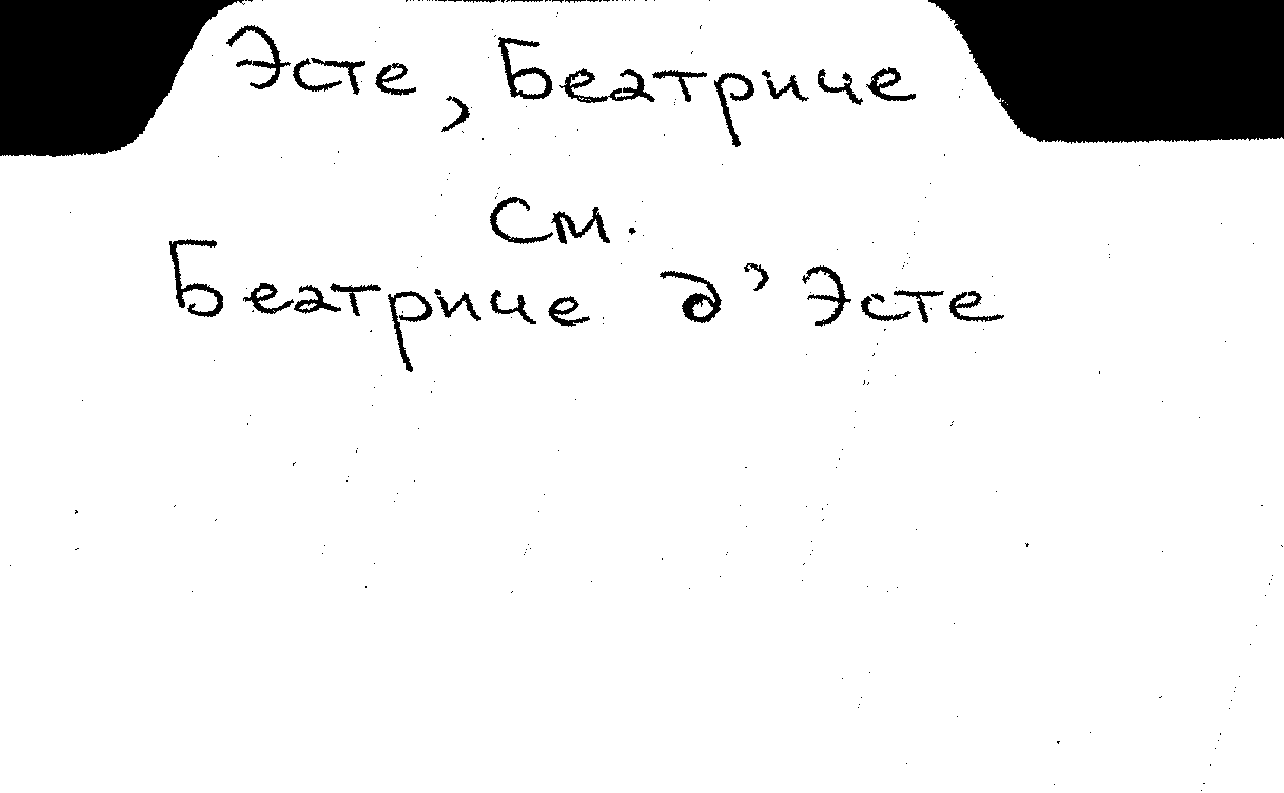 Эсте, Беатриче
см.
Беатриче д'Эсте